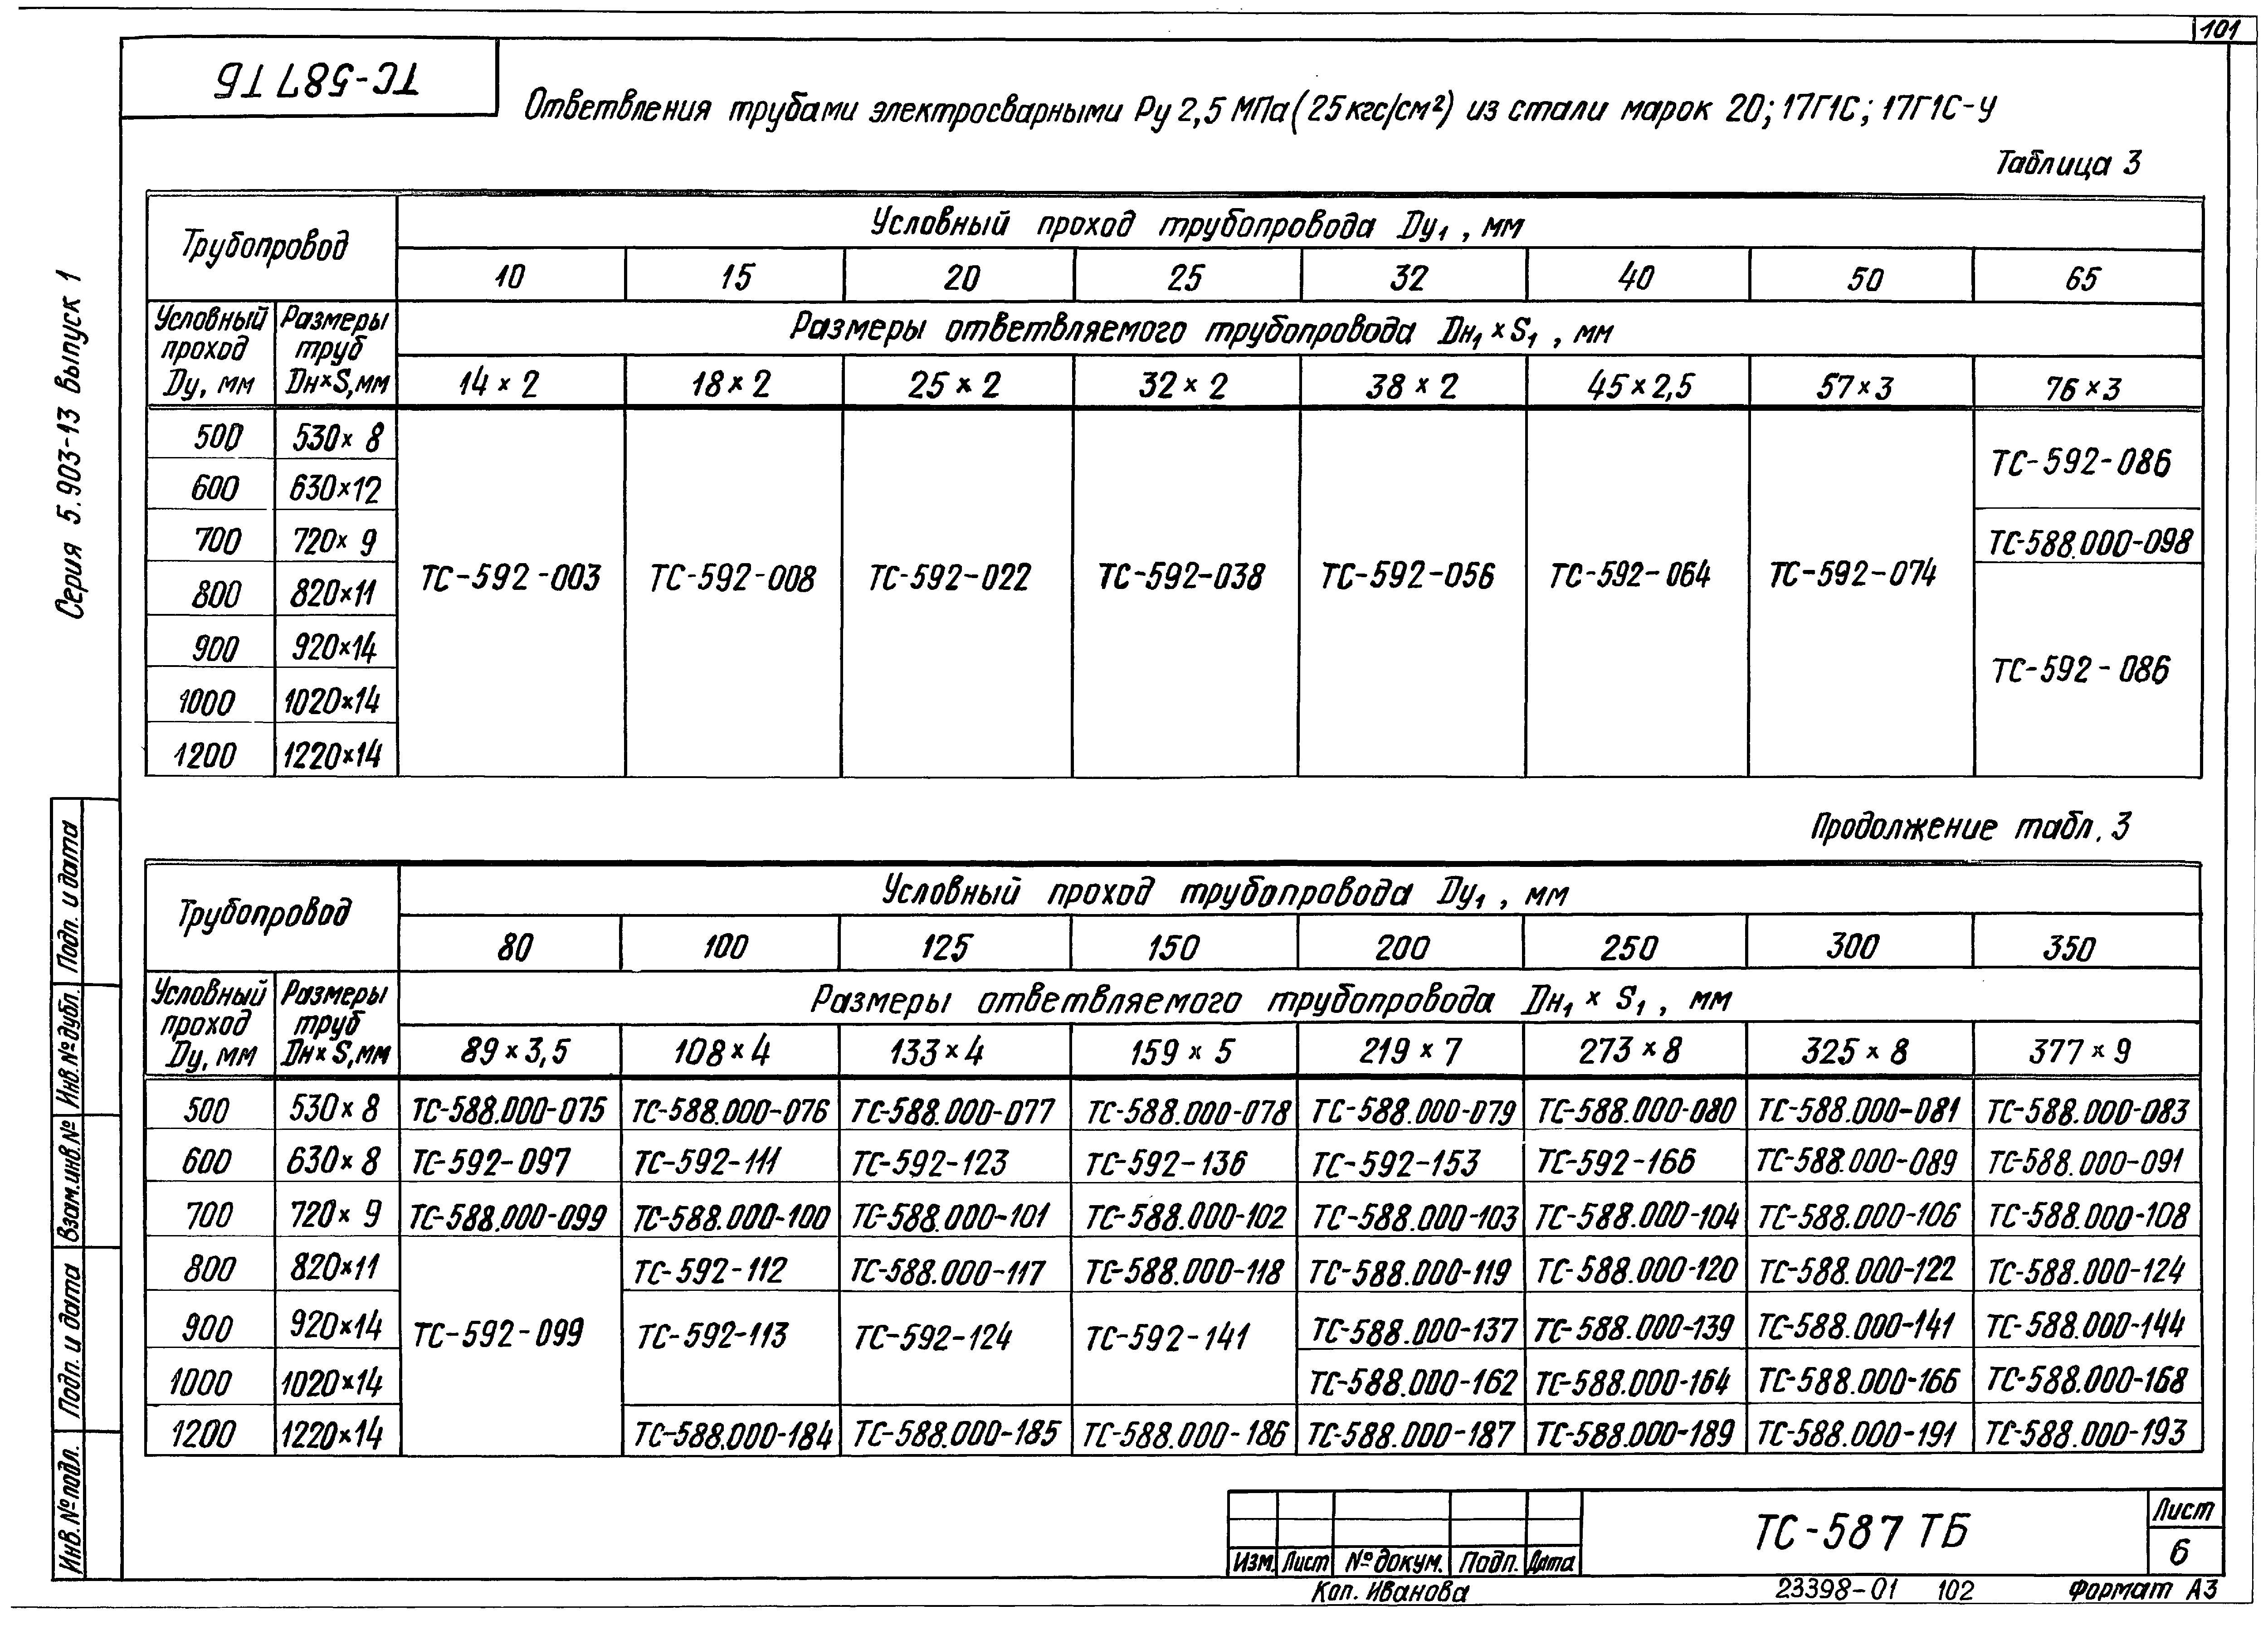 101
ТС-587 ТБ
Ответвления трубами электросварными Ру 2,5 МПа (25 кгс/см²) из стали марок 20; 17Г1С; 17Г1С-У
Таблица 3
Серия 5.903-13 выпуск 1
Трубопровод
Условный проход трубопровода Ду₁, мм
10 15 20 25 32 40 50 65
Условный проход Ду, мм
Размеры труб Дн×S, мм
Размеры ответвляемого трубопровода Дн₁×S₁, мм
14×2 18×2 25×2 32×2 38×2 45×2,5 57×3 76×3
500 530×8
ТС-592-086
600 630×12
700 720×9 ТС-588.000-098
ТС-592-003 ТС-592-008 ТС-592-022 ТС-592-038 ТС-592-056 ТС-592-064 ТС-592-074
800 820×11
900 920×14
ТС-592-086
1000 1020×14
1200 1220×14
Продолжение табл. 3
Трубопровод
Условный проход трубопровода Ду₁, мм
80 100 125 150 200 250 300 350
Условный проход Ду, мм
Размеры труб Дн×S, мм
Размеры ответвляемого трубопровода Дн₁×S₁, мм
89×3,5 108×4 133×4 159×5 219×7 273×8 325×8 377×9
500 530×8 ТС-588.000-075 ТС-588.000-076 ТС-588.000-077 ТС-588.000-078 ТС-588.000-079 ТС-588.000-080 ТС-588.000-081 ТС-588.000-083
600 630×8 ТС-592-097 ТС-592-111 ТС-592-123 ТС-592-136 ТС-592-153 ТС-592-166 ТС-588.000-089 ТС-588.000-091
700 720×9 ТС-588.000-099 ТС-588.000-100 ТС-588.000-101 ТС-588.000-102 ТС-588.000-103 ТС-588.000-104 ТС-588.000-106 ТС-588.000-108
800 820×11 ТС-592-112 ТС-588.000-117 ТС-588.000-118 ТС-588.000-119 ТС-588.000-120 ТС-588.000-122 ТС-588.000-124
900 920×14 ТС-592-099 ТС-592-113 ТС-592-124 ТС-592-141 ТС-588.000-137 ТС-588.000-139 ТС-588.000-141 ТС-588.000-144
1000 1020×14 ТС-588.000-162 ТС-588.000-164 ТС-588.000-166 ТС-588.000-168
1200 1220×14 ТС-588.000-184 ТС-588.000-185 ТС-588.000-186 ТС-588.000-187 ТС-588.000-189 ТС-588.000-191 ТС-588.000-193
Подп. и дата
Инв.№ дубл.
Взам.инв.№
Подп. и дата
Инв.№ подл.
Изм. Лист № докум. Подп. Дата
ТС-587 ТБ
Лист
6
Коп. Иванова
23398-01 102
Формат А3